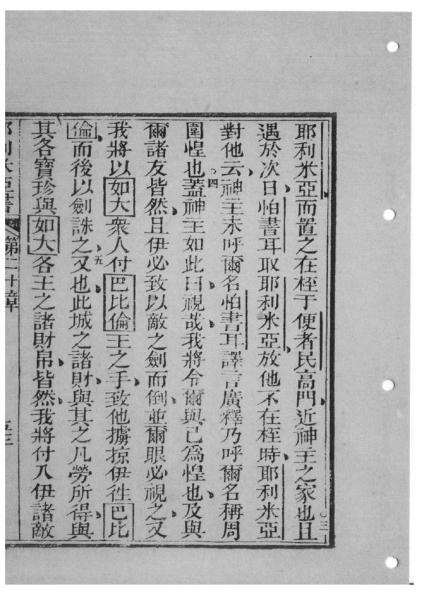 耶利米亞而置之在桎于便者民高門近神主之家也且三
遇於次日怕書耳取耶利米亞放他不在桎時耶利米亞
對他云神主未呼爾名怕書耳譯言廣釋乃呼爾名稱周
圍惶也四蓋神主如此曰視哉我將令爾與己為惶也及與
爾諸友皆然且伊必致以敵之劍而倒並爾眼必視之又
我將以如大眾人付巴比倫王之手致他擄掠伊徃巴比
倫而後以劍誅之又也五此城之諸財與其之凡勞所得與
其各寶珍與如大各王之諸財帛皆然我將付入伊諸敵
耶利米亞書 第二十章